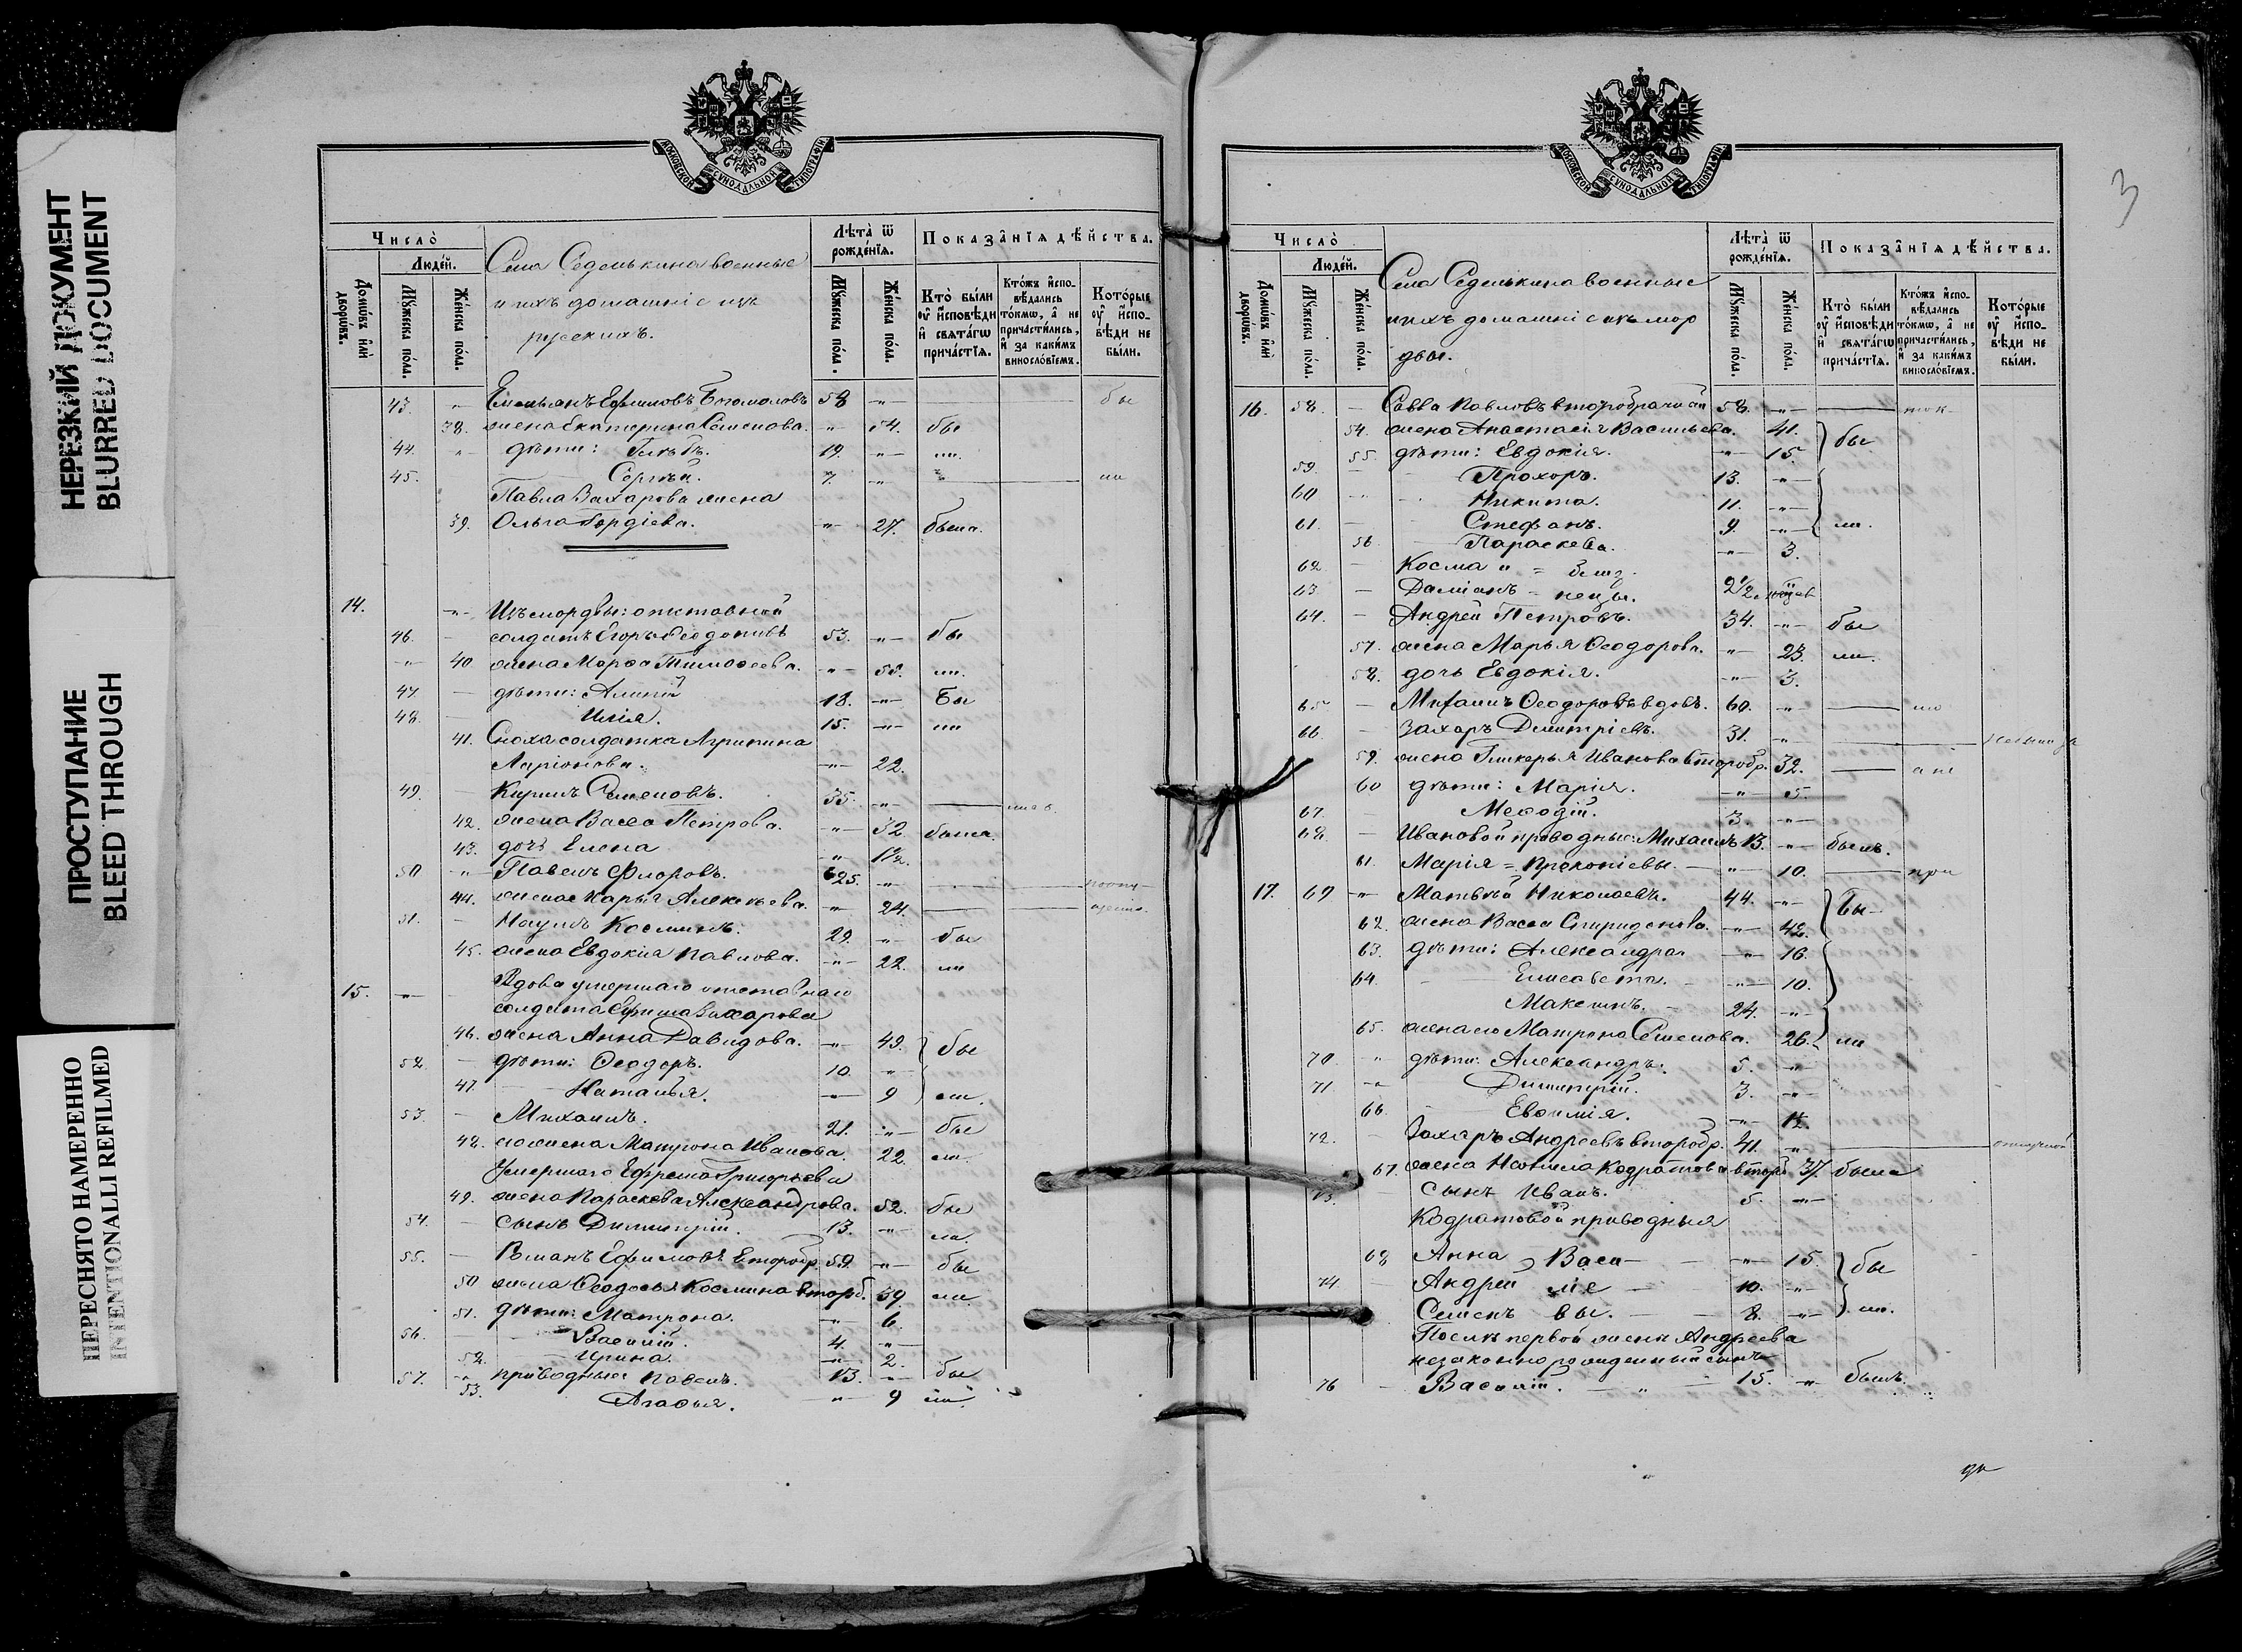 НЕРЕЗКИЙ ДОКУМЕНТ
BLURRED DOCUMENT
ПРОСТУПАНИЕ
BLEED THROUGH
ПЕРЕСНЯТО НАМЕРЕННО
INTENTIONALLI REFILMED
МОСКОВСКОЙ СѴНОДАЛЬНОЙ ТИПОГРАФІИ
Число̀
Людей.
Домѡвъ и҆лѝ дворѡвъ.
Мꙋжеска по́ла.
Же́нска по́ла.
Села Седелькина военные
и ихъ домашніе изъ
русскихъ.
Лѣта̀ ѿ рожде́нїѧ.
Мꙋжеска по́ла.
Же́нска по́ла.
Показа̑нїѧ дѣ́йства.
Кто̀ бы́ли ᲂу҆ и҆спо́вѣди и҆ свѧта́гѡ прича́стїѧ.
Кто́жъ и҆сповѣ́дались то́кмѡ, а҆ не причасти́лись, и҆ за каки́мъ винослоʹвїемъ.
Кото́рые ᲂу҆ и҆спо́вѣди не бы́ли.
43. " Емельянъ Ефимовъ Богомоловъ 58 " бы
38. жена Екатерина Семенова. " 54. бы
44. " дѣти: Глѣбъ. 19. " ли.
45. Сергѣй. 7. " ли
Павла Захарова жена
39. Ольга Гордіева. " 27. была.
14. " Изъ мордвы: отставной
46. солдатъ Егоръ Ѳедотовъ 53. " бы
" 40 жена Марѳа Тимоѳеева. " 55. ли.
47. дѣти: Алипій 18. " Бы
48. Илія. 15. " ли
41. Сноха солдатка Агрипина
Ларіонова. " 22.
49. Кирилъ Семеновъ. 35. "
42. жена Васса Петрова. " 32 была.
43. дочь Елена " 1½.
50 " Павелъ Флоровъ. 25. "
44. жена Марья Алексѣева. " 24.
51. Наумъ Косминъ. 29. " бы
45. жена Евдокія Павлова. " 22. ли
15. " Вдова умершаго отставнаго
солдата Ефима Захарова
46. жена Анна Давидова. " 49. бы
52. дѣти: Ѳеодоръ. 10. "
47. Наталья. " 9 ли.
53. Михаилъ. 21. " бы
48. его жена Матрона Иванова. 22. ли.
Умершаго Ефрема Григорьева
49. жена Параскева Александрова. 52. бы
54. сынъ Димитрій. 13. " ли.
55. Романъ Ефимовъ второбр. 59. " бы
50 жена Ѳеодосья Космина втораб. 39 ли
51. дѣти: Матрона. " 6.
56. Василій. 4. "
52. Ирина. " 2.
57. " приводные Павелъ. 13. " бы
53. Агаѳья. " 9 ли.
3
МОСКОВСКОЙ СѴНОДАЛЬНОЙ ТИПОГРАФІИ
Число̀
Людей.
Домѡвъ и҆лѝ дворѡвъ.
Мꙋжеска по́ла.
Же́нска по́ла.
Села Седелькина военные
и ихъ домашніе изъ мор
двы.
Лѣта̀ ѿ рожде́нїѧ.
Мꙋжеска по́ла.
Же́нска по́ла.
Показа̑нїѧ дѣ́йства.
Кто̀ бы́ли ᲂу҆ и҆спо́вѣди и҆ свѧта́гѡ прича́стїѧ.
Кто́жъ и҆сповѣ́дались то́кмѡ, а҆ не причасти́лись, и҆ за каки́мъ винослоʹвїемъ.
Кото́рые ᲂу҆ и҆спо́вѣди не бы́ли.
16. 58. Савва Павловъ второбрачный 58. "
54. жена Анастасія Васильева. 41. бы
55. дѣти: Евдокія. " 15.
59. Прохоръ. 13. "
60 Никита. 11. "
61. Стефанъ. 9. " ли.
56 Параскева. " 3.
62. Косма " = близ
63. Даміанъ = нецы. 2½.
64. Андрей Петровъ. 34. " бы
57. жена Марья Ѳеодорова. " 23. ли.
58. дочь Евдокія. " 3.
65 Михаилъ Ѳеодоровъ вдовъ. 60. "
66. Захаръ Димитріевъ. 31. "
59. жена Гликерья Иванова второбр. 32.
60 дѣти: Марія. " 5.
67. Меѳодій. 3. "
68. Ивановой приводные: Михаилъ 13. " былъ.
61. Марія = Прокопіевы. " 10. при
17. 69 " Матвѣй Николаевъ. 44. " Бы
62. жена Васса Спиридонова. " 42.
63. дѣти: Александра " 16.
64. Елисавета. " 10.
Максимъ. 24. "
65. жена его Матрона Семенова. 26. ли
70 " дѣти: Александръ. 5. "
71 " Димитрій. 3. "
66. Евѳимія. " 1½.
72. Захаръ Андреевъ второбр. 41. "
67. жена Неонила Кодратова второ 37. была
73. сынъ Иванъ. 5. "
Кодратовой приводныя
68 Анна Васи " 15. бы
74 Андрей лье 10. "
Семенъ вы. 8. " ли.
Послѣ первой жены Андреева
незаконнорожденный сынъ
76 Василій. 15. " былъ.